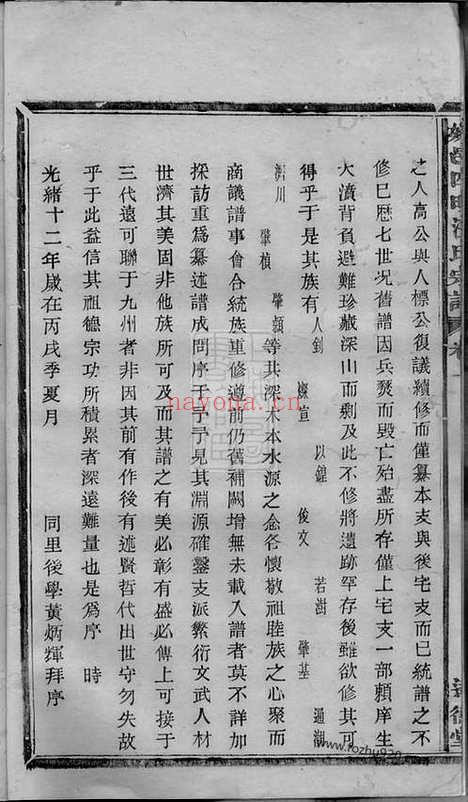 之人高公與人標公復議續修而僅纂本支與後宅支而已統譜之不
修已歷七世况舊譜因兵燹而毀亡殆盡所存僅上宅支一部賴庠生
大濆背負避難珍藏深山而剩及此不修將遺跡罕存後雖欲修其可
得乎于是其族有人釗 慶宣 以鐘 俊文 若澍 肇基 通湖
湄川 肇槙 肇穎等其深木本水源之念各懷敬祖睦族之心聚而
商議譜事會合統族重修遵前仍舊補闕增無未載入譜者莫不詳加
採訪重為纂述譜成問序于予予見其淵源確鑿支派繁衍文武人材
世濟其美固非他族所可及而其譜之有美必彰有盛必傳上可接于
三代遠可聯于九州者非因其前有作後有述賢哲代出世守勿失故
乎于此益信其祖德宗功所積累者深遠難量也是為序 時
光緒十二年歲在丙戌季夏月 同里後學黃炳輝拜序
nayona.cn
www.rozhu920.com